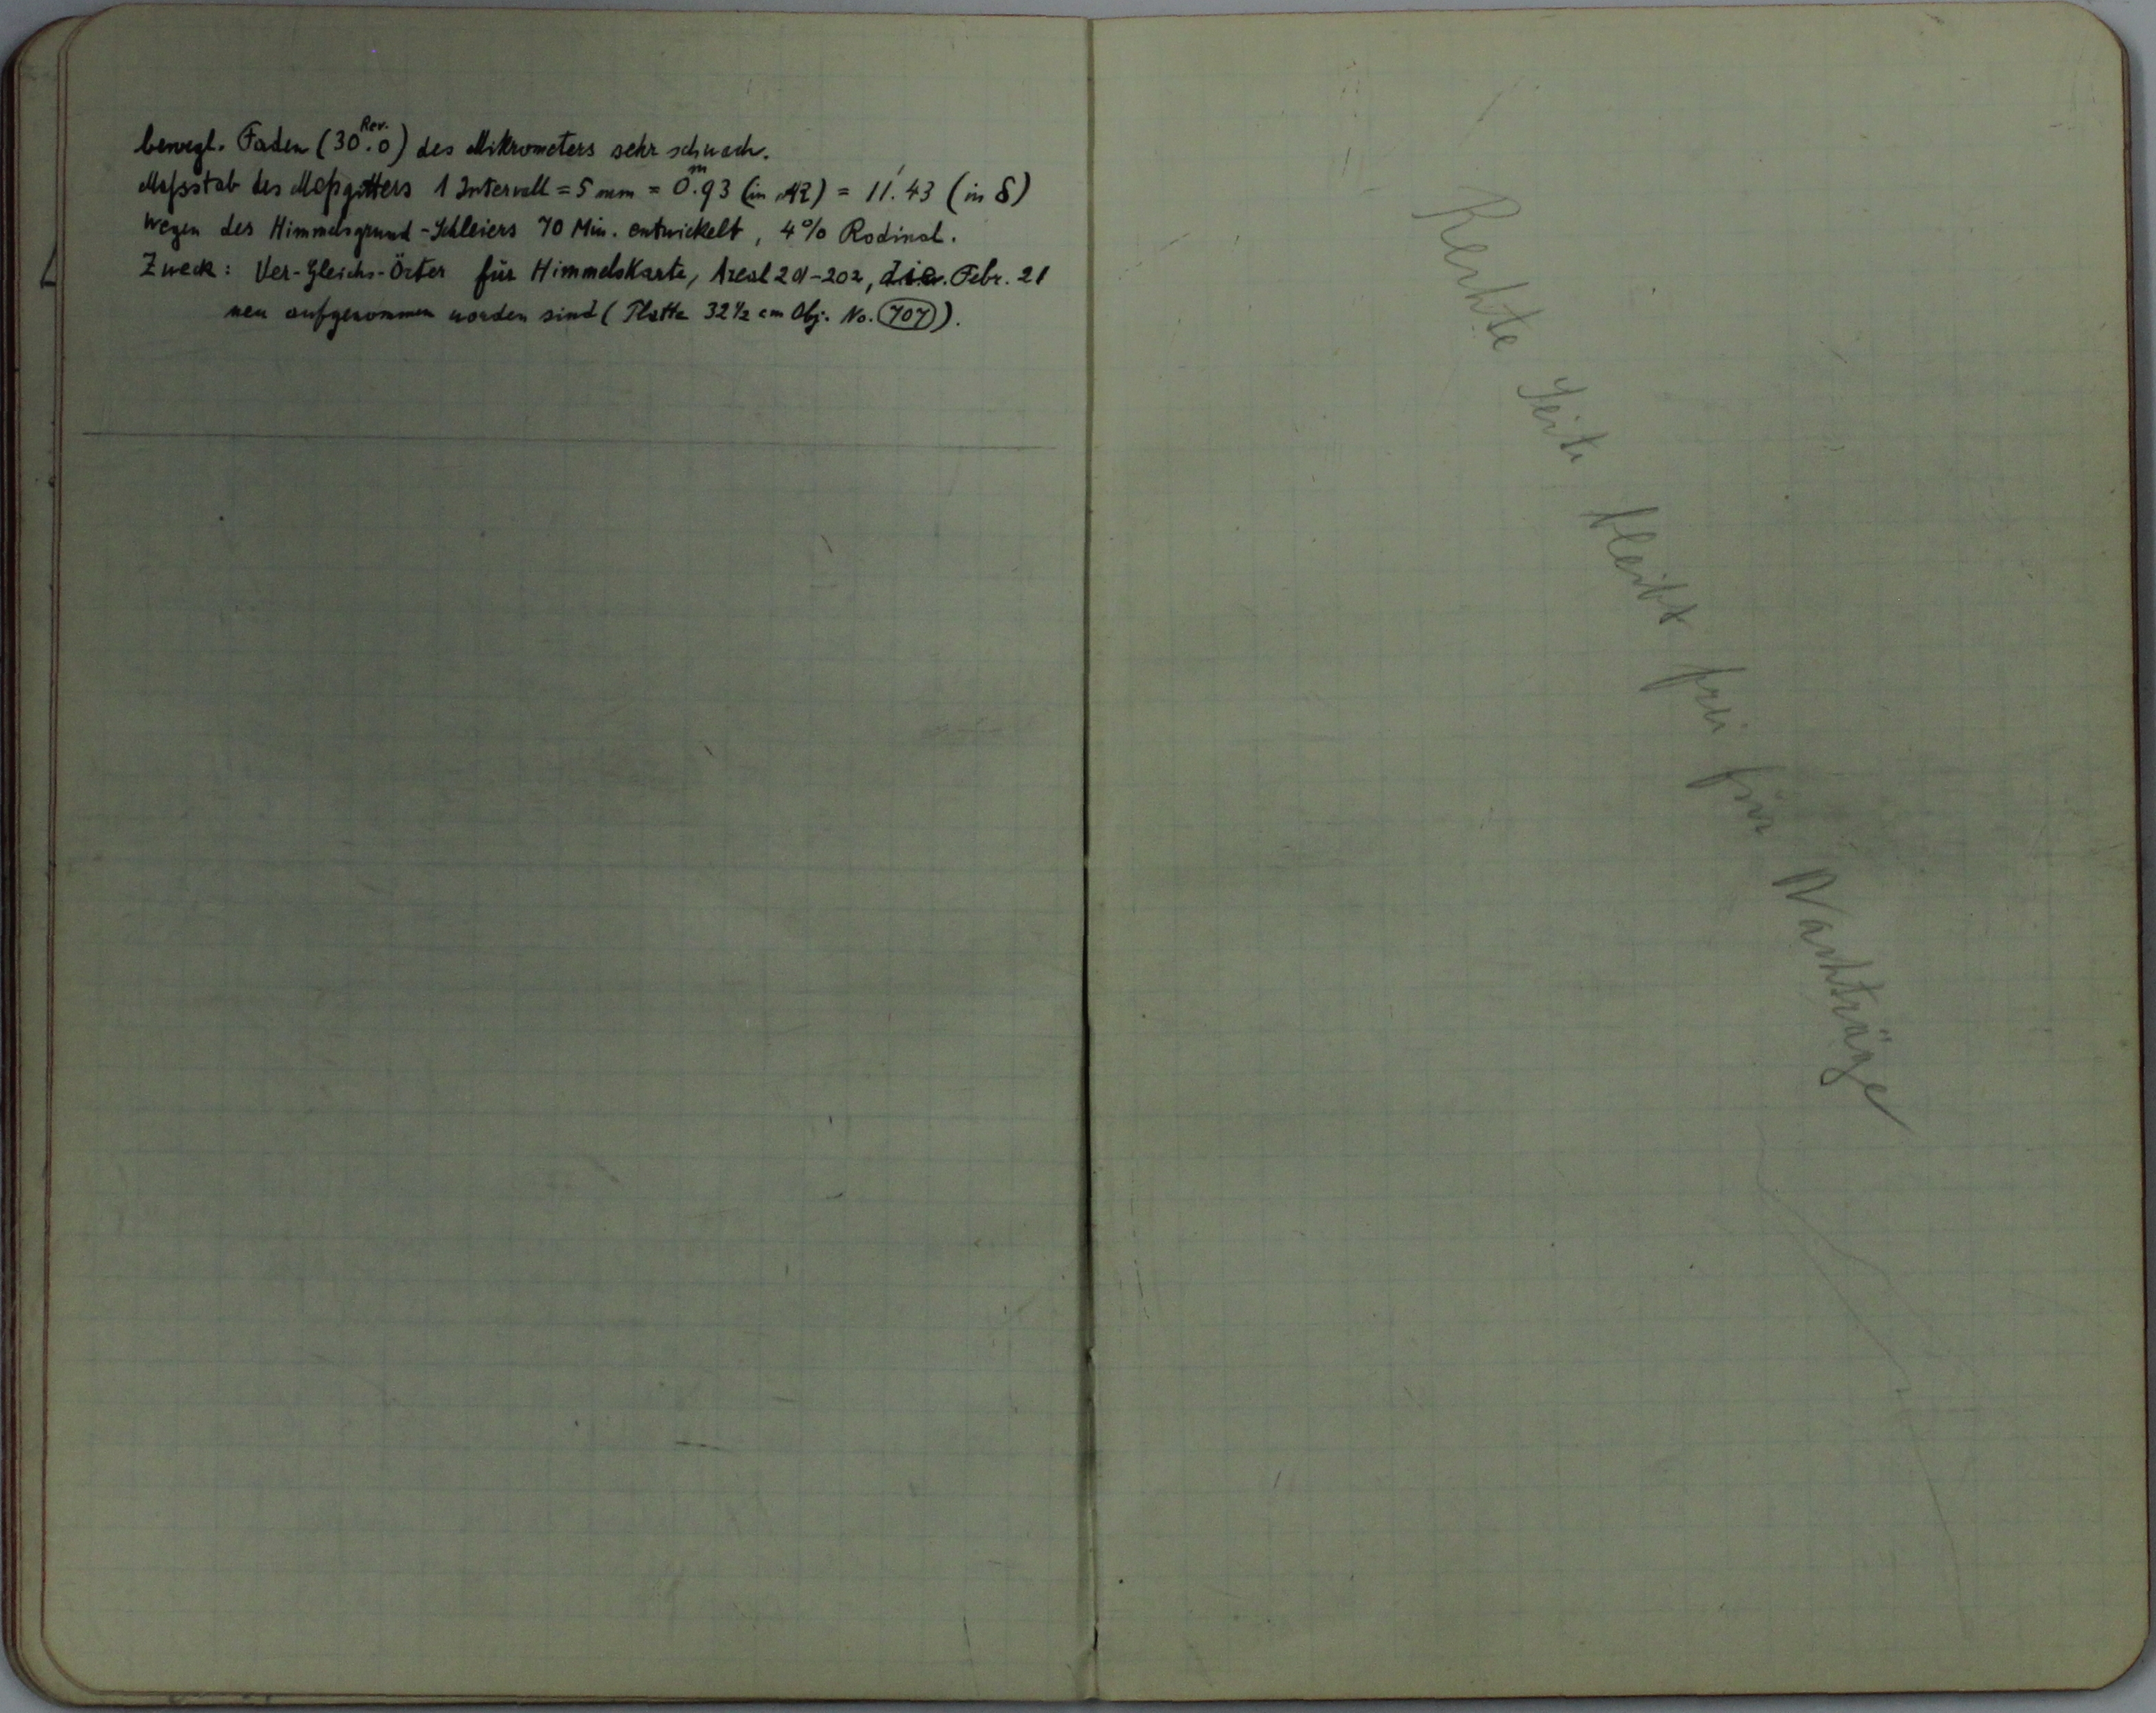 bewegl. Faden (30 Rev. .0) des Mikrometers sehr schwach.
Maſsstab des Meßgitters 1 Intervall = 5 mm = 0.ᵐ93 (in AR) = 11.′43 (in δ)
wegen des Himmelsgrund-Schleiers 70 Min. entwickelt, 4% Rodinal.
Zweck: Ver-Gleichs-Örter für Himmelskarte, Areal 201-202, die Febr. 21
neu aufgenommen worden sind (Platte 32½ cm Obj. No. 707).
Rechte Seite bleibt frei für Nachträge